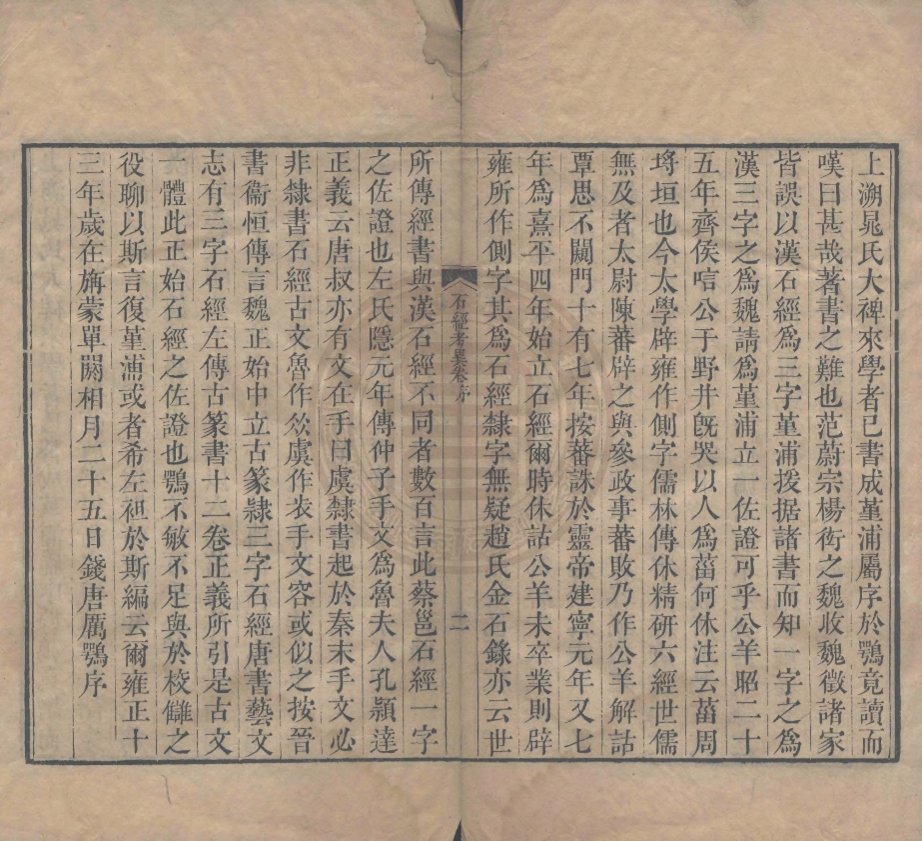 上溯晁氏大裨來學者已書成堇浦屬序於鶚竟讀而
嘆曰甚哉著書之難也范蔚宗楊衒之魏收魏徵諸家
皆誤以漢石經為三字堇浦援据諸書而知一字之為
漢三字之為魏請為堇浦立一佐證可乎公羊昭二十
五年齊侯唁公于野井旣哭以人為菑何休注云菑周
埒垣也今太學辟雍作側字儒林傳休精研六經世儒
無及者太尉陳蕃辟之與參政事蕃敗乃作公羊解詁
覃思不闚門十有七年按蕃誅於靈帝建寧元年又七
年為熹平四年始立石經爾時休詁公羊未卒業則辟
雍所作側字其為石經隸字無疑趙氏金石錄亦云世
石經考異卷序
二
所傳經書與漢石經不同者數百言此蔡邕石經一字
之佐證也左氏隱元年傳仲子手文為魯夫人孔頴達
正義云唐叔亦有文在手曰虞隸書起於秦末手文必
非隸書石經古文魯作𣥐虞作𠈌手文容或似之按晉
書衞恒傳言魏正始中立古篆隸三字石經唐書藝文
志有三字石經左傳古篆書十二卷正義所引是古文
一體此正始石經之佐證也鶚不敏不足與於校讎之
役聊以斯言復堇浦或者希左袒於斯編云爾雍正十
三年歲在旃蒙單閼相月二十五日錢唐厲鶚序